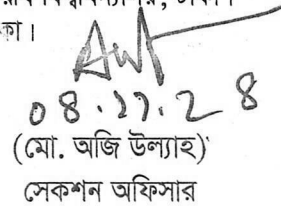 কা।
০৪.১১.২৪
(মো. অজি উল্যাহ)
সেকশন অফিসার